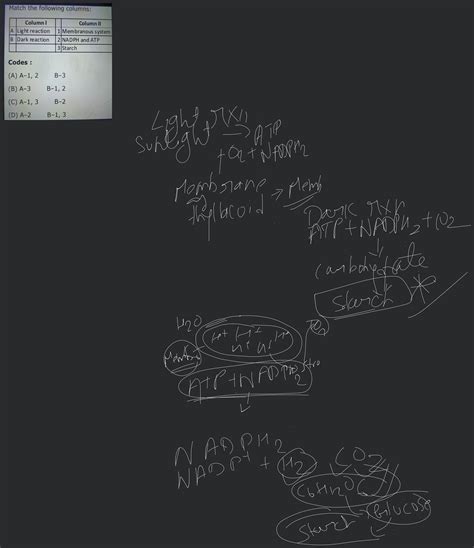 Match the following columns:
Column I Column II
A Light reaction 1 Membranous system
B Dark reaction 2 NADPH and ATP
3 Starch
Codes :
(A) A-1, 2 B-3
(B) A-3 B-1, 2
(C) A-1, 3 B-2
(D) A-2 B-1, 3
Light rxn
Sunlight → ATP
+ O2 + NADPH2
Membrane → Memb
thylacoid
Dark rxn
ATP + NADPH2 + CO2
Carbohydrate
Starch
H2O
ATP + NADPH2
NADPH2 CO2
NADP+ + H2
C6H12O6
Glucose
Starch